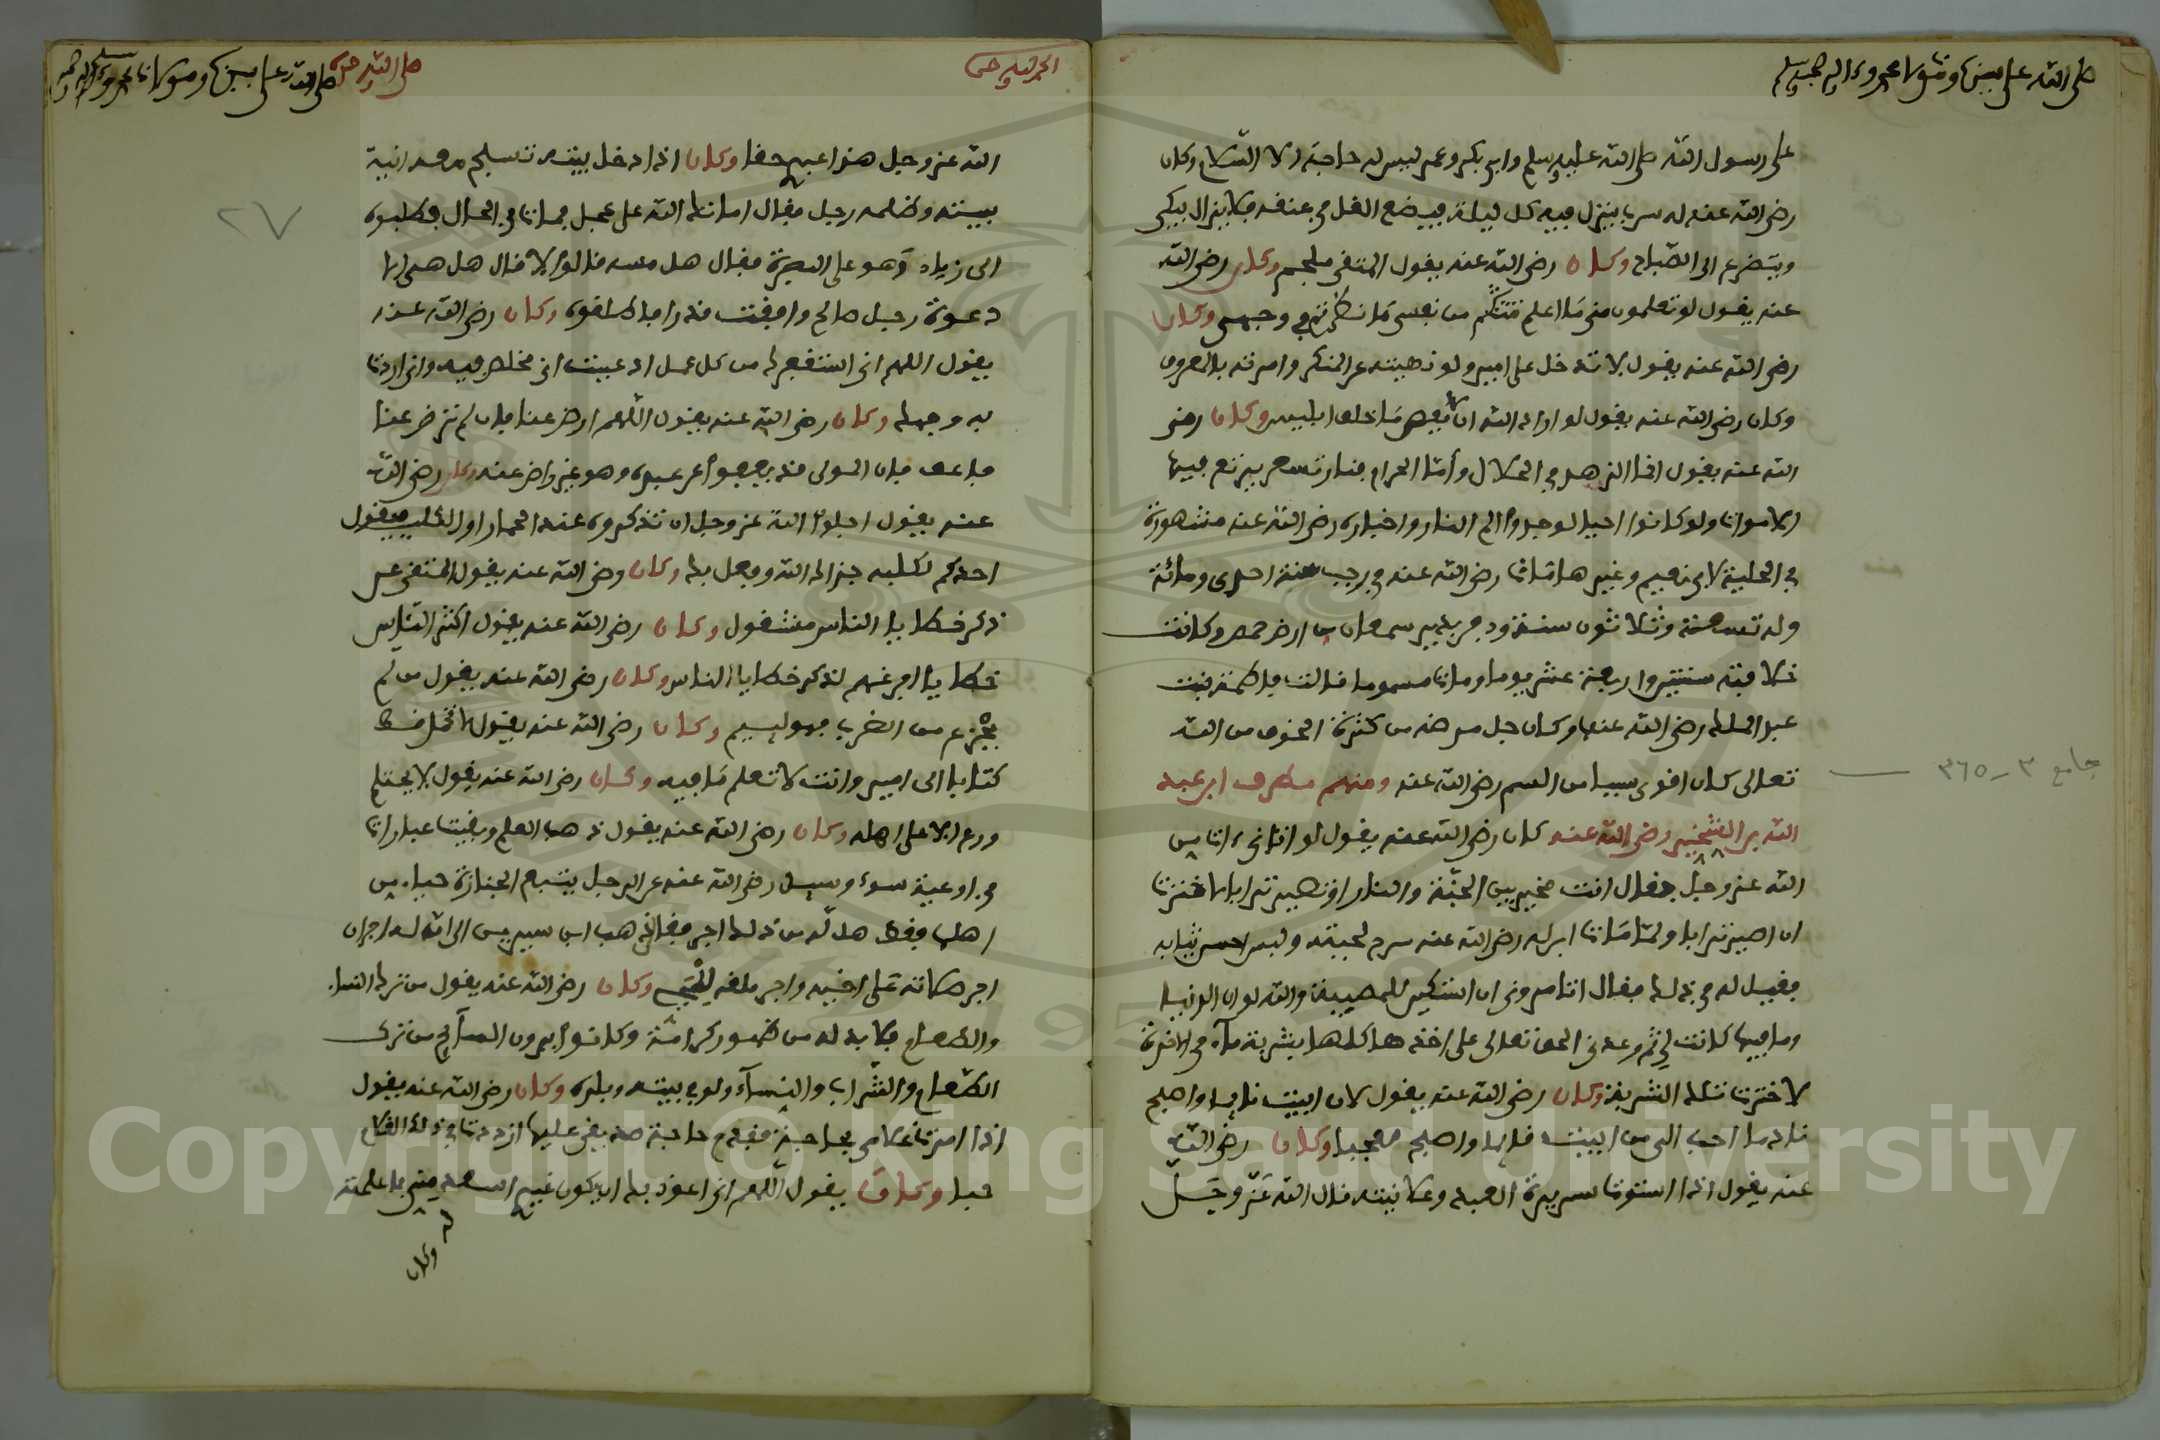 صلى الله على سيدنا ومولانا محمد وءاله وصحبه وسلم
على رسول الله صلى الله عليه وسلم وابي بكر وعمر ليس له حاجة الا السلام وكان
رضي الله عنه له سرب ينزل فيه كل ليلة فيضع الغل في عنقه فلا يزال يبكي
ويتضرع الى الصباح وكان رضي الله عنه يقول المتقي ملجم وكان رضي الله
عنه يقول لو تعلمون مني ما اعلم من نفسي ما نظرتم في وجهي وكان
رضي الله عنه يقول لا تدخل على امير ولو نهيته عن المنكر وامرته بالمعروف
وكان رضي الله عنه يقول لو اراد الله ان لا يعصى ما خلق ابليس وكان رضي
الله عنه يقول انما الزهد في الحلال وأما الحرام فنار تسعر يرتع فيها
الاموات ولو كانوا احياء لوجدوا الم النار واخباره رضي الله عنه مشهورة
في الحلية لابي نعيم وغيرها مات رضي الله عنه في رجب سنة احدى ومائة
وله تسعة وثلاثون سنة ودفن بدير سمعان من ارض حمص وكانت
خلافته سنتين واربعة عشر يوما ومات مسموما قالت فاطمة بنت
عبد الملك رضي الله عنها وكان جل مرضه من كثرة الخوف من الله
تعالى كان اقوى سببا من السم رضي الله عنه ومنهم مطرف ابن عبد
الله بن الشخير رضي الله عنه كان رضي الله عنه يقول لو اتاني ءات من
الله عز وجل فقال انت مخير بين الجنة والنار او تصير ترابا لاخترت
ان اصير ترابا ولما مات ابنه رضي الله عنه سرح لحيته ولبس احسن ثيابه
فقيل له في ذلك فقال اتامروني ان استكين للمصيبة والله لو ان الدنيا
وما فيها كانت لي ثم وعدني الحق تعالى على اخذها كلها بشربة ماء في الاخرة
لاخترت تلك الشربة وكان رضي الله عنه يقول لان ابيت نائما واصبح
نادما احب الي من ابيت قائما واصبح معجبا وكان رضي الله
عنه يقول اذا استوت سريرة العبد وعلانيته قال الله عز وجل
الحمد لله وحده
صلى الله على سيدنا ومولانا محمد وءاله وصحبه وسلم
٢٧
الله عز وجل هذا عبدي حقا وكان اذا دخل بيته تسبح معه انية
بيته وظلمه رجل فقال اماتك الله على عجل فمات في الحال فطلبوه
الى زياد وهو على البصرة فقال هل مسه قالوا لا قال هل هي الا
دعوة رجل صالح وافقت قدرا فاطلقوه وكان رضي الله عنه
يقول اللهم اني استغفرك من كل عمل ادعيت اني مخلص فيه واني اردت
به وجهك وكان رضي الله عنه يقول اللهم ارض عنا فان لم ترض عنا
فاعف فان المولى قد يعفو عن عبده وهو غير راض عنه وكان رضي الله
عنه يقول اجلوا الله عز وجل ان تذكروه عند الحمار او الكلب فيقول
احدكم لكلبه جزاك الله وفعل بك وكان رضي الله عنه يقول المتقي عن
ذكر خطايا الناس مشغول وكان رضي الله عنه يقول اكثر الناس
خطايا افرغهم لذكر خطايا الناس وكان رضي الله عنه يقول من لم
يجزع من الضرب فهو لئيم وكان رضي الله عنه يقول لا تحمل قط
كتابا الى امير وانت لا تعلم ما فيه وكان رضي الله عنه يقول لا يحتلم
ورع الا على اهله وكان رضي الله عنه يقول ذهب العلم وبقيت عبارات
في اوعية سوء وسئل رضي الله عنه عن الرجل يتبع الجنازة حياء من
اهلها فقط هل له من ذلك اجر فقال ذهب ابن سيرين الى انه له اجران
اجر صلاته على اخيه واجر ملقه للحي وكان رضي الله عنه يقول من ترك النساء
والطعام فلا بد له من ظهور كرامة وكانوا يرون السائح من ترك
الطعام والشراب والنساء ولو في بيته وبلده وكان رضي الله عنه يقول
اذا امرت غلامي بحاجة فقدم حاجة صديقي عليها ازددت في ذلك الغلام
حبا وكان يقول اللهم اني اعوذ بك ان يكون غيري اسعد مني بما علمته
وكان
جامع ٣ - ٣٦٥
Copyright © King Saud University
1957